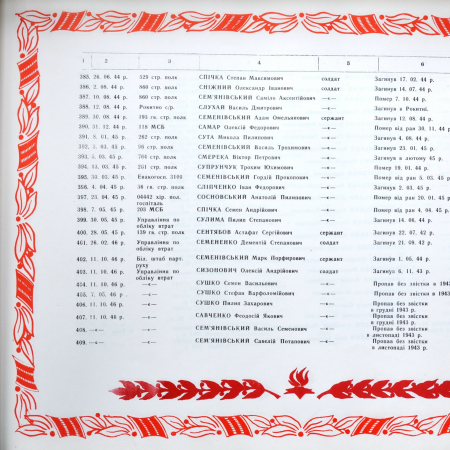 1 2 3 4 5 6
385. 26. 06. 44 р. 529 стр. полк СПІЧКА Степан Максимович солдат Загинув 17. 02. 44 р.
386. 2. 08. 44 р. 860 стр. полк СНІЖНИЙ Олександр Іванович солдат Загинув 14. 07. 44 р.
387. 10. 08. 44 р. 860 стр. полк СЕМ'ЯНІВСЬКИЙ Самійло Аксентійович —«— Помер 7. 10. 44 р.
388. 12. 08. 44 р. Рокитне с/р. СЛУХАЙ Василь Дмитрович —«— Загинув в Рокитні.
389. 30. 08. 44 р. 193 гв. стр. полк СЕМЕНІВСЬКИЙ Адам Омелянович сержант Загинув 12. 08. 44 р.
390. 31. 12. 44 р. 118 МСБ САМАР Олексій Федорович —«— Помер від ран 30. 11. 44 р.
391. 8. 01. 45 р. 262 стр. полк СУТА Микола Пилипович —«— Загинув 4. 06. 44 р.
392. 2. 03. 45 р. стр. полк СЕМЕНІВСЬКИЙ Василь Трохимович —«— Загинув 23. 01. 45 р.
393. 5. 03. 45 р. 764 стр. полк СМЕРЕКА Віктор Петрович —«— Загинув в лютому 45 р.
стр. полк СУПРУНЧУК Трохим Юхимович —«— Помер 19. 01. 44 р.
395. 30. 03. 45 р. Евакогосп. СЕМЕНІВСЬКИЙ Гордій Прокопович —«— Помер від ран 45 р.
396. 4. 04. 45 р. 38 гв. стр. полк СЛІПЧЕНКО Іван Федорович —«— Загинув 2. 03. 45 р.
397. 23. 04. 45 р. 04642 хір. под. СОСНОВСЬКИЙ Анатолій Пилипович —«— Помер від ран 20. 01. 43 р.
госпіталь
398. 7. 05. 45 р. 203 МСБ СПІЧКА Семен Андрійович —«— Помер від ран 4. 08. 45 р.
399. 30. 05. 45 р. Управління по СУЛИМА Пилип Степанович —«— Загинув 14. 06. 44 р.
обліку втрат
400. 29. 05. 45 р. 139 гв. стр. полк СЕНТЯБОВ Астафат Сергійович сержант Загинув 22. 07. 42 р.
401. 26. 02. 46 р. Управління по СЕМЕНЕНКО Дементій Степанович солдат Загинув 21. 09. 42 р.
обліку втрат
402. 11. 10. 46 р. Біл. штаб парт. СЕМЕНІВСЬКИЙ Марк Порфирович сержант Загинув 1. 06. 44 р.
руху
403. 11. 10. 46 р. Управління по СИЗОПОВИЧ Олексій Андрійович солдат Загинув 6. 11. 43 р.
обліку втрат
404. 11. 10. 46 р. —«— СУШКО Семен Васильович —«— Пропав без звістки в 1943
405. 7. 05. 46 р. —«— СУШКО Стефан Варфоломійович —«— Пропав без звістки в 1943
406. 11. 10. 46 р. —«— СУШКО Пилип Захарович —«— Пропав без звістки
в грудні 1943 р.
407. 11. 10. 46 р. —«— САВЧЕНКО Феодосій Якович —«— Пропав без звістки
в грудні 1943 р.
408. —«— —«— СЕМ'ЯНІВСЬКИЙ Василь Семенович —«— Пропав без звістки
в листопаді 1943 р.
409. —«— —«— СЕМ'ЯНІВСЬКИЙ Савелій Потапович —«— Пропав без звістки
в листопаді 1943 р.